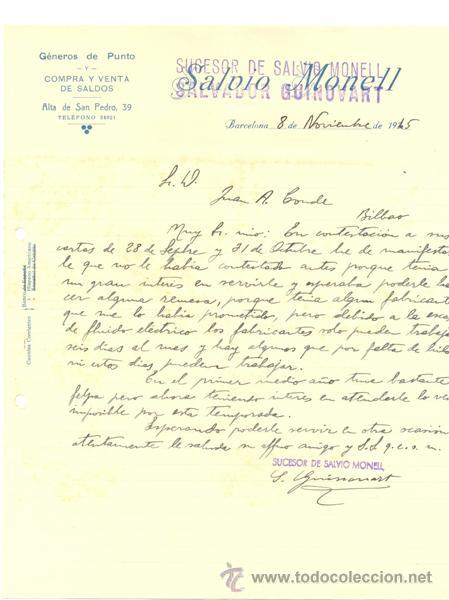 Géneros de Punto
- Y -
COMPRA Y VENTA
DE SALDOS
Alta de San Pedro, 39
TELÉFONO
Salvio Monell
SUCESOR DE SALVIO MONELL
SALVADOR GUINOVART
Barcelona 8 de Noviembre de 1945
Sr. D.
Juan A. Conde
Bilbao
Muy Sr. mio: En contestación a sus
cartas de 28 de Sepbre y 31 de Octubre he de manifestar
le que no le habia contestado antes porque tenia
un gran interés en servirle y esperaba poderle ha
cer alguna remesa, porque tenia algun fabricante
que me lo habia prometido, pero debido a la esca
de fluido electrico los fabricantes solo pueden trabajar
seis dias al mes y hay algunos que por falta de hilo
ni estos dias pueden trabajar.
En el primer medio año tuve bastante
felpa pero ahora teniendo interés en atenderle lo veo
imposible por esta temporada.
Esperando poderle servir en otra ocasión
atentamente le saluda su affmo amigo y S.S. q.e.s.m.
SUCESOR DE SALVIO MONELL
S. Guinovart
Cuentas Corrientes
www.todocoleccion.net